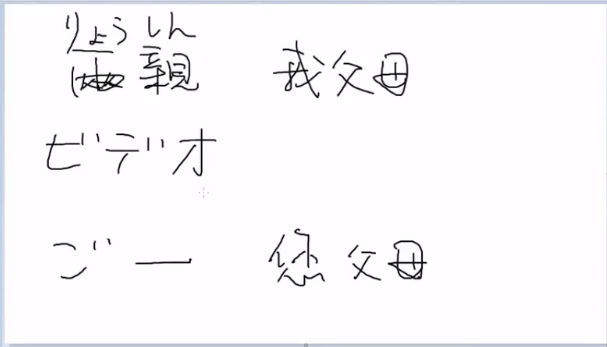 りょうしん
両親 我父母
ビデオ
ご一 您父母